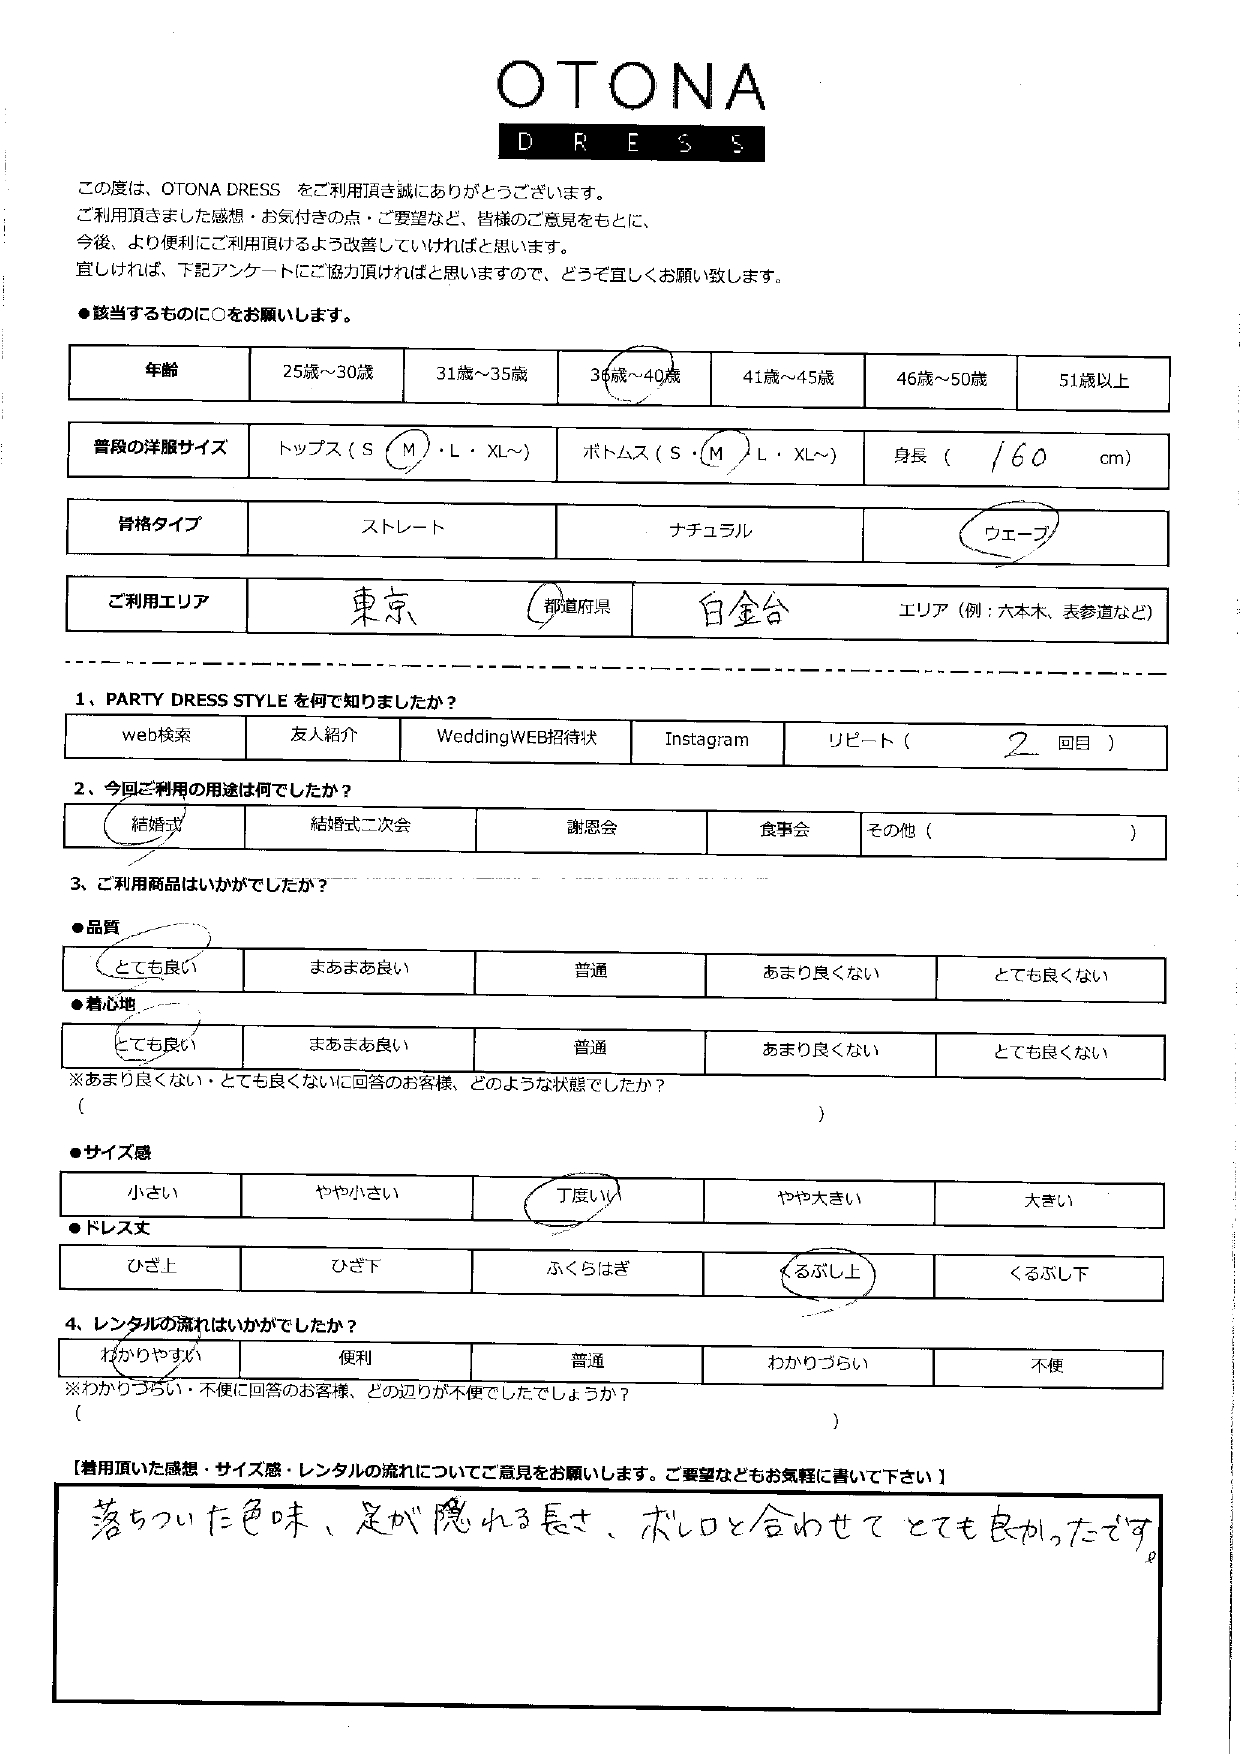 OTONA
DRESS
この度は、OTONA DRESS をご利用頂き誠にありがとうございます。
ご利用頂きました感想・お気付きの点・ご要望など、皆様のご意見をもとに、
今後、より便利にご利用頂けるよう改善していければと思います。
宜しければ、下記アンケートにご協力頂ければと思いますので、どうぞ宜しくお願い致します。
●該当するものに○をお願いします。
年齢 25歳～30歳 31歳～35歳 36歳～40歳 41歳～45歳 46歳～50歳 51歳以上
普段の洋服サイズ トップス（ S ・ M ・ L ・ XL～) ボトムス（ S ・ M ・ L ・ XL～) 身長 （ 160 cm）
骨格タイプ ストレート ナチュラル ウェーブ
ご利用エリア 東京 都道府県 白金台 エリア（例：六本木、表参道など）
1、PARTY DRESS STYLE を何で知りましたか？
web検索 友人紹介 WeddingWEB招待状 Instagram リピート（ 2 回目 ）
2、今回ご利用の用途は何でしたか？
結婚式 結婚式二次会 謝恩会 食事会 その他（ ）
3、ご利用商品はいかがでしたか？
●品質
とても良い まあまあ良い 普通 あまり良くない とても良くない
●着心地
とても良い まあまあ良い 普通 あまり良くない とても良くない
※あまり良くない・とても良くないに回答のお客様、どのような状態でしたか？
（ ）
●サイズ感
小さい やや小さい 丁度いい やや大きい 大きい
●ドレス丈
ひざ上 ひざ下 ふくらはぎ くるぶし上 くるぶし下
4、レンタルの流れはいかがでしたか？
わかりやすい 便利 普通 わかりづらい 不便
※わかりづらい・不便に回答のお客様、どの辺りが不便でしたでしょうか？
（ ）
【着用頂いた感想・サイズ感・レンタルの流れについてご意見をお願いします。ご要望などもお気軽に書いて下さい】
落ちついた色味、足が隠れる長さ、ボレロと合わせてとても良かったです。